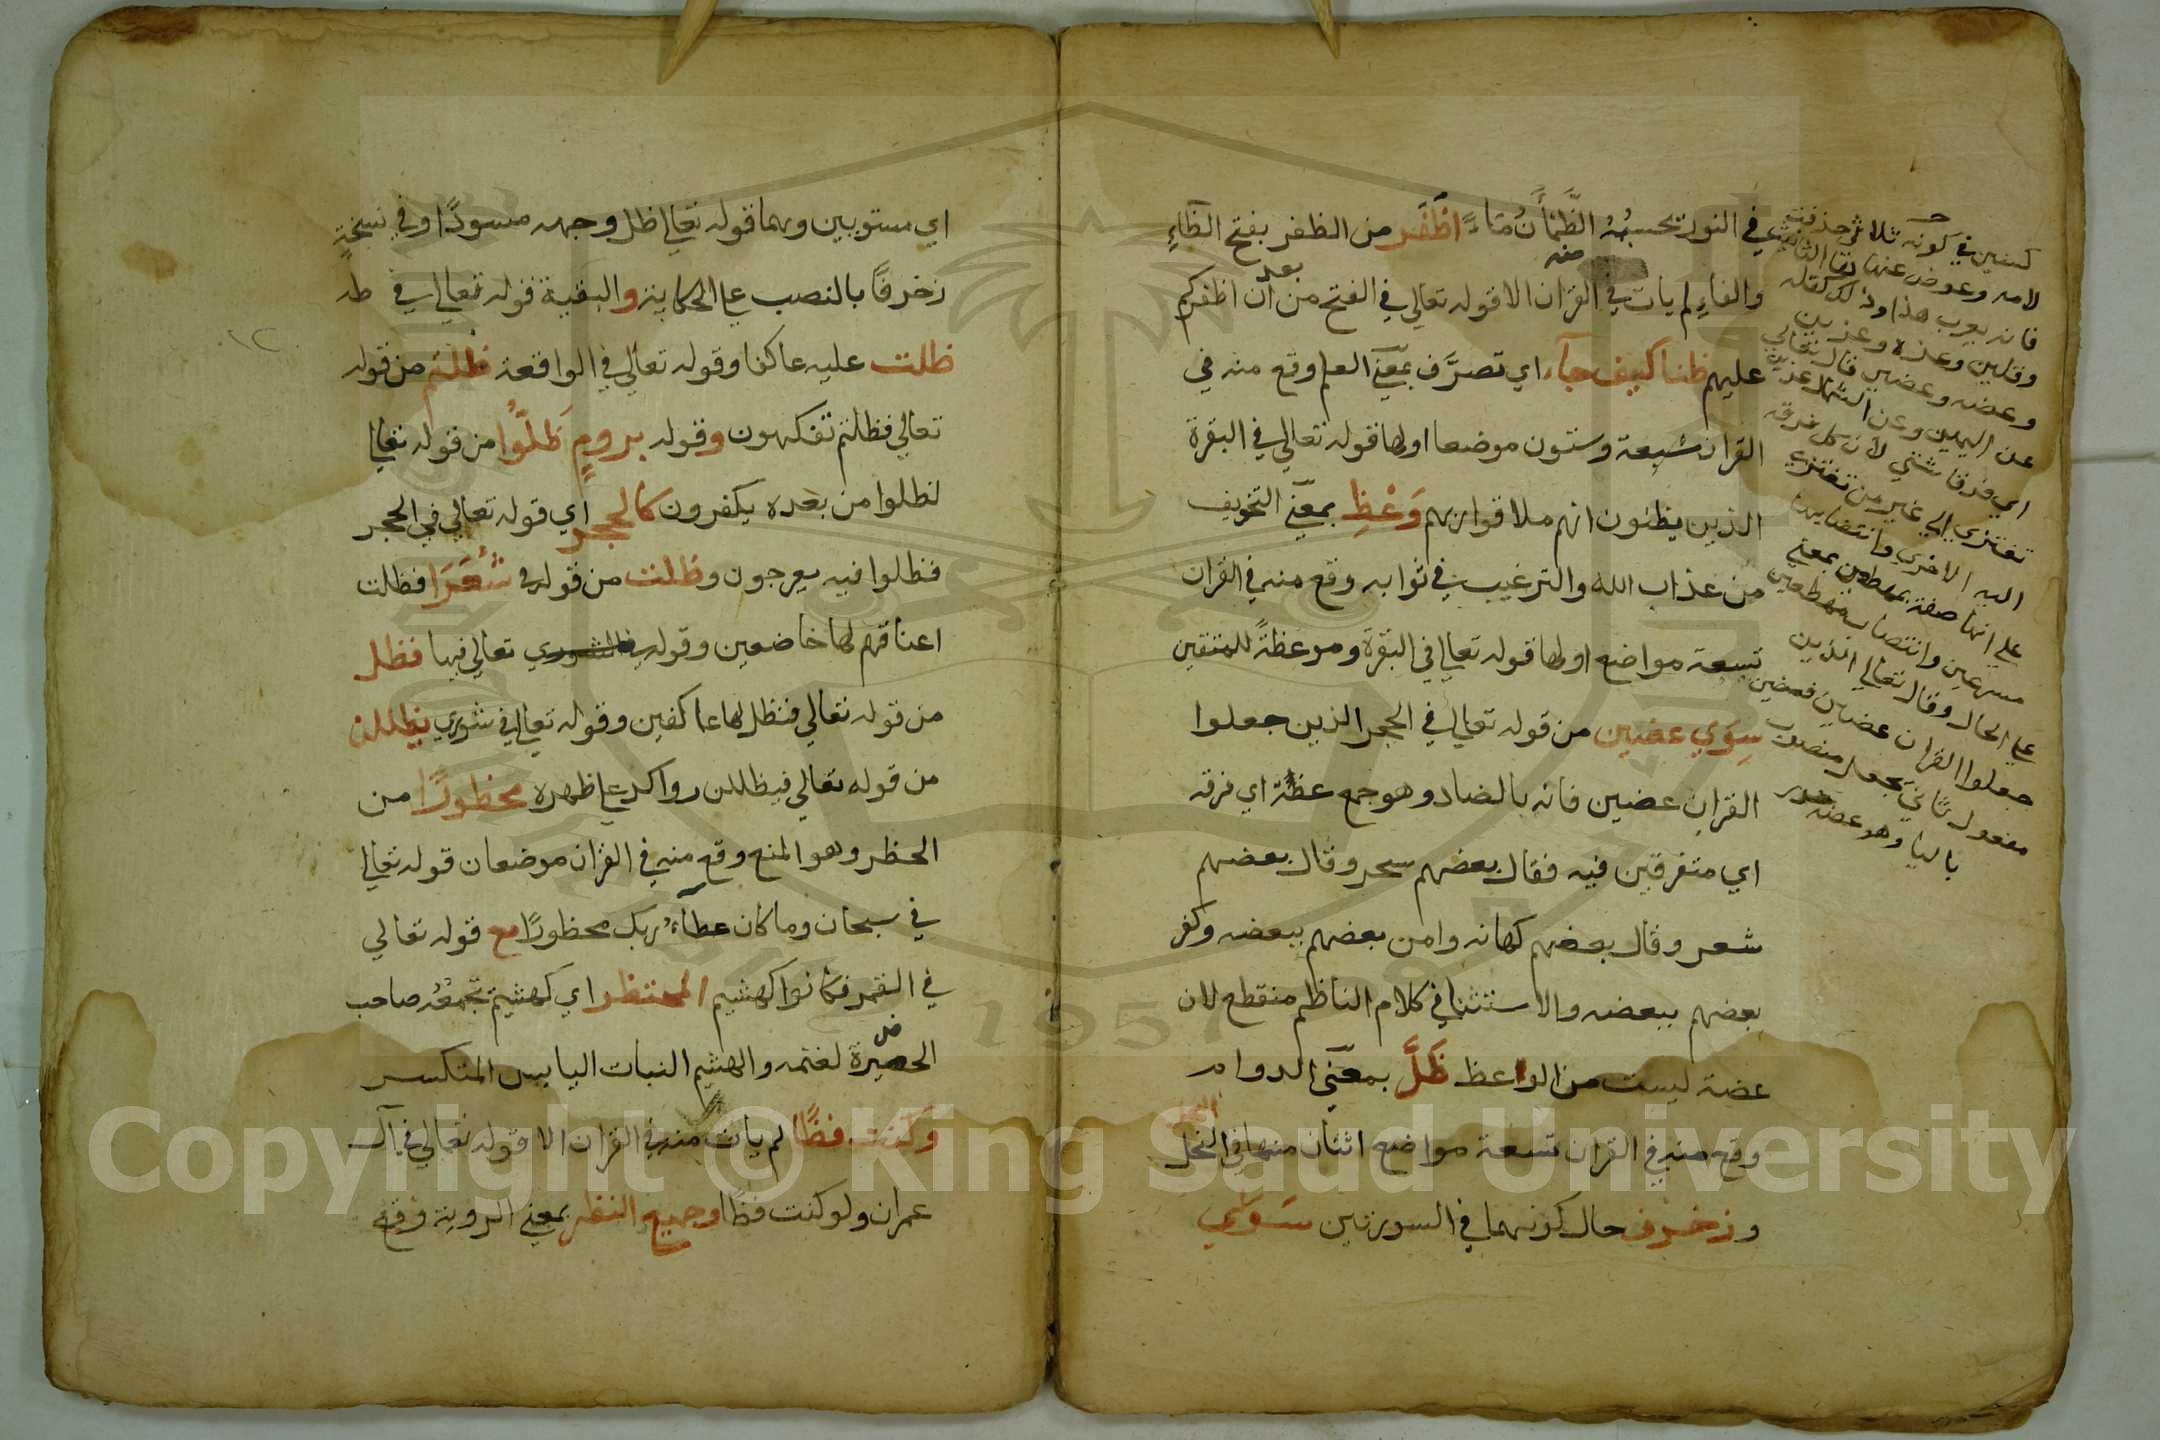 في النور تحسبه الظَّمْأَنُ مَاءً اظْفَر من الظفر بفتح الظآءِ
والفاءِ لم يات منه في القران الا قوله تعالي في الفتح من بعد ان اظفركم
عليهم ظنا كيف جآء اي تصرَّف بمعني العلم وقع منه في
القران سبعة وستون موضعا اولها قوله تعالي في البقرة
الذين يظنون انهم ملاقوا ربهم وَعْظِ بمعني التخويف
من عذاب الله والترغيب في ثوابه وقع منه في القران
تسعة مواضع اولها قوله تعالي في البقرة وموعظةً للمتقين
سِوَي عضين من قوله تعالي في الحجر الذين جعلوا
القران عضين فانه بالضاد وهو جمع عضة اي فرقة
اي متفرقين فيه فقال بعضهم سحر وقال بعضهم
شعر وقال بعضهم كهانة وامن بعضهم ببعضه وكفر
بعضهم ببعضه والاستثنا في كلام الناظم منقطع لان
عضة ليست من الواعظ ظَلَّ بمعني الدوام
وقع منه في القران تسعة مواضع اثنان منها في النحل
النحل
وزخرف حال كونهما في السورتين سَوَاي
كسنين في كونه ثلاثي حذفت
لامه وعوض عنها
فانه يعرب هذا وذلك كقله
وقلين وعزه وعزين
وعضه وعضين قال تعالي
عن اليمين وعن الشمال عزين
اي فرقا شتي لان كل فرقة
تعتزي الي غير من تعتزي
اليه الاخري وانتصابها
علي انها صفة لمهطعين بمعني
مسرعين وانتصاب مهطعين
علي الحال وقال تعالي الذين
جعلوا القران عضين فعضين
مفعول ثاني بجعل منصوب
باليا وهو عضه
اي مستويين وهما قوله تعالي ظل وجهه مسودًا وفي نسخةٍ
زخرفًا بالنصب علي الحكاية والبقية قوله تعالي في طه
ظلت عليه عاكفا وقوله تعالي في الواقعة ظلتم من قوله
تعالي فظلتم تفكهون وقوله بروم ظَلُّوا من قوله تعالي
لظلوا من بعده يكفرون كالحجر اي قوله تعالي في الحجر
فظلوا فيه يعرجون وظلت من قوله في شُعَرَا فظلت
اعناقهم لها خاضعين وقوله تعالي فيها فظل
من قوله تعالي فنظل لها عاكفين وقوله تعالي في شوري يظللن
من قوله تعالي فيظللن رواكد علي ظهره محظورًا من
الحظر وهو المنع وقع منه في القران موضعان قوله تعالي
في سبحان وما كان عطآءُ ربك محظورًا مع قوله تعالي
في القمر فكانوا كهشيم المحتظر اي كهشيم تجمعُهُ صاحب
الحظيرة لغنمه والهشيم النبات اليابس المتكسر
وكنت فظًّا لم يات منه في القران الا قوله تعالي في آل
عمران ولو كنت فظًا وجميع النظر بمعني الروية وقع
١٢
Copyright © King Saud University
1957